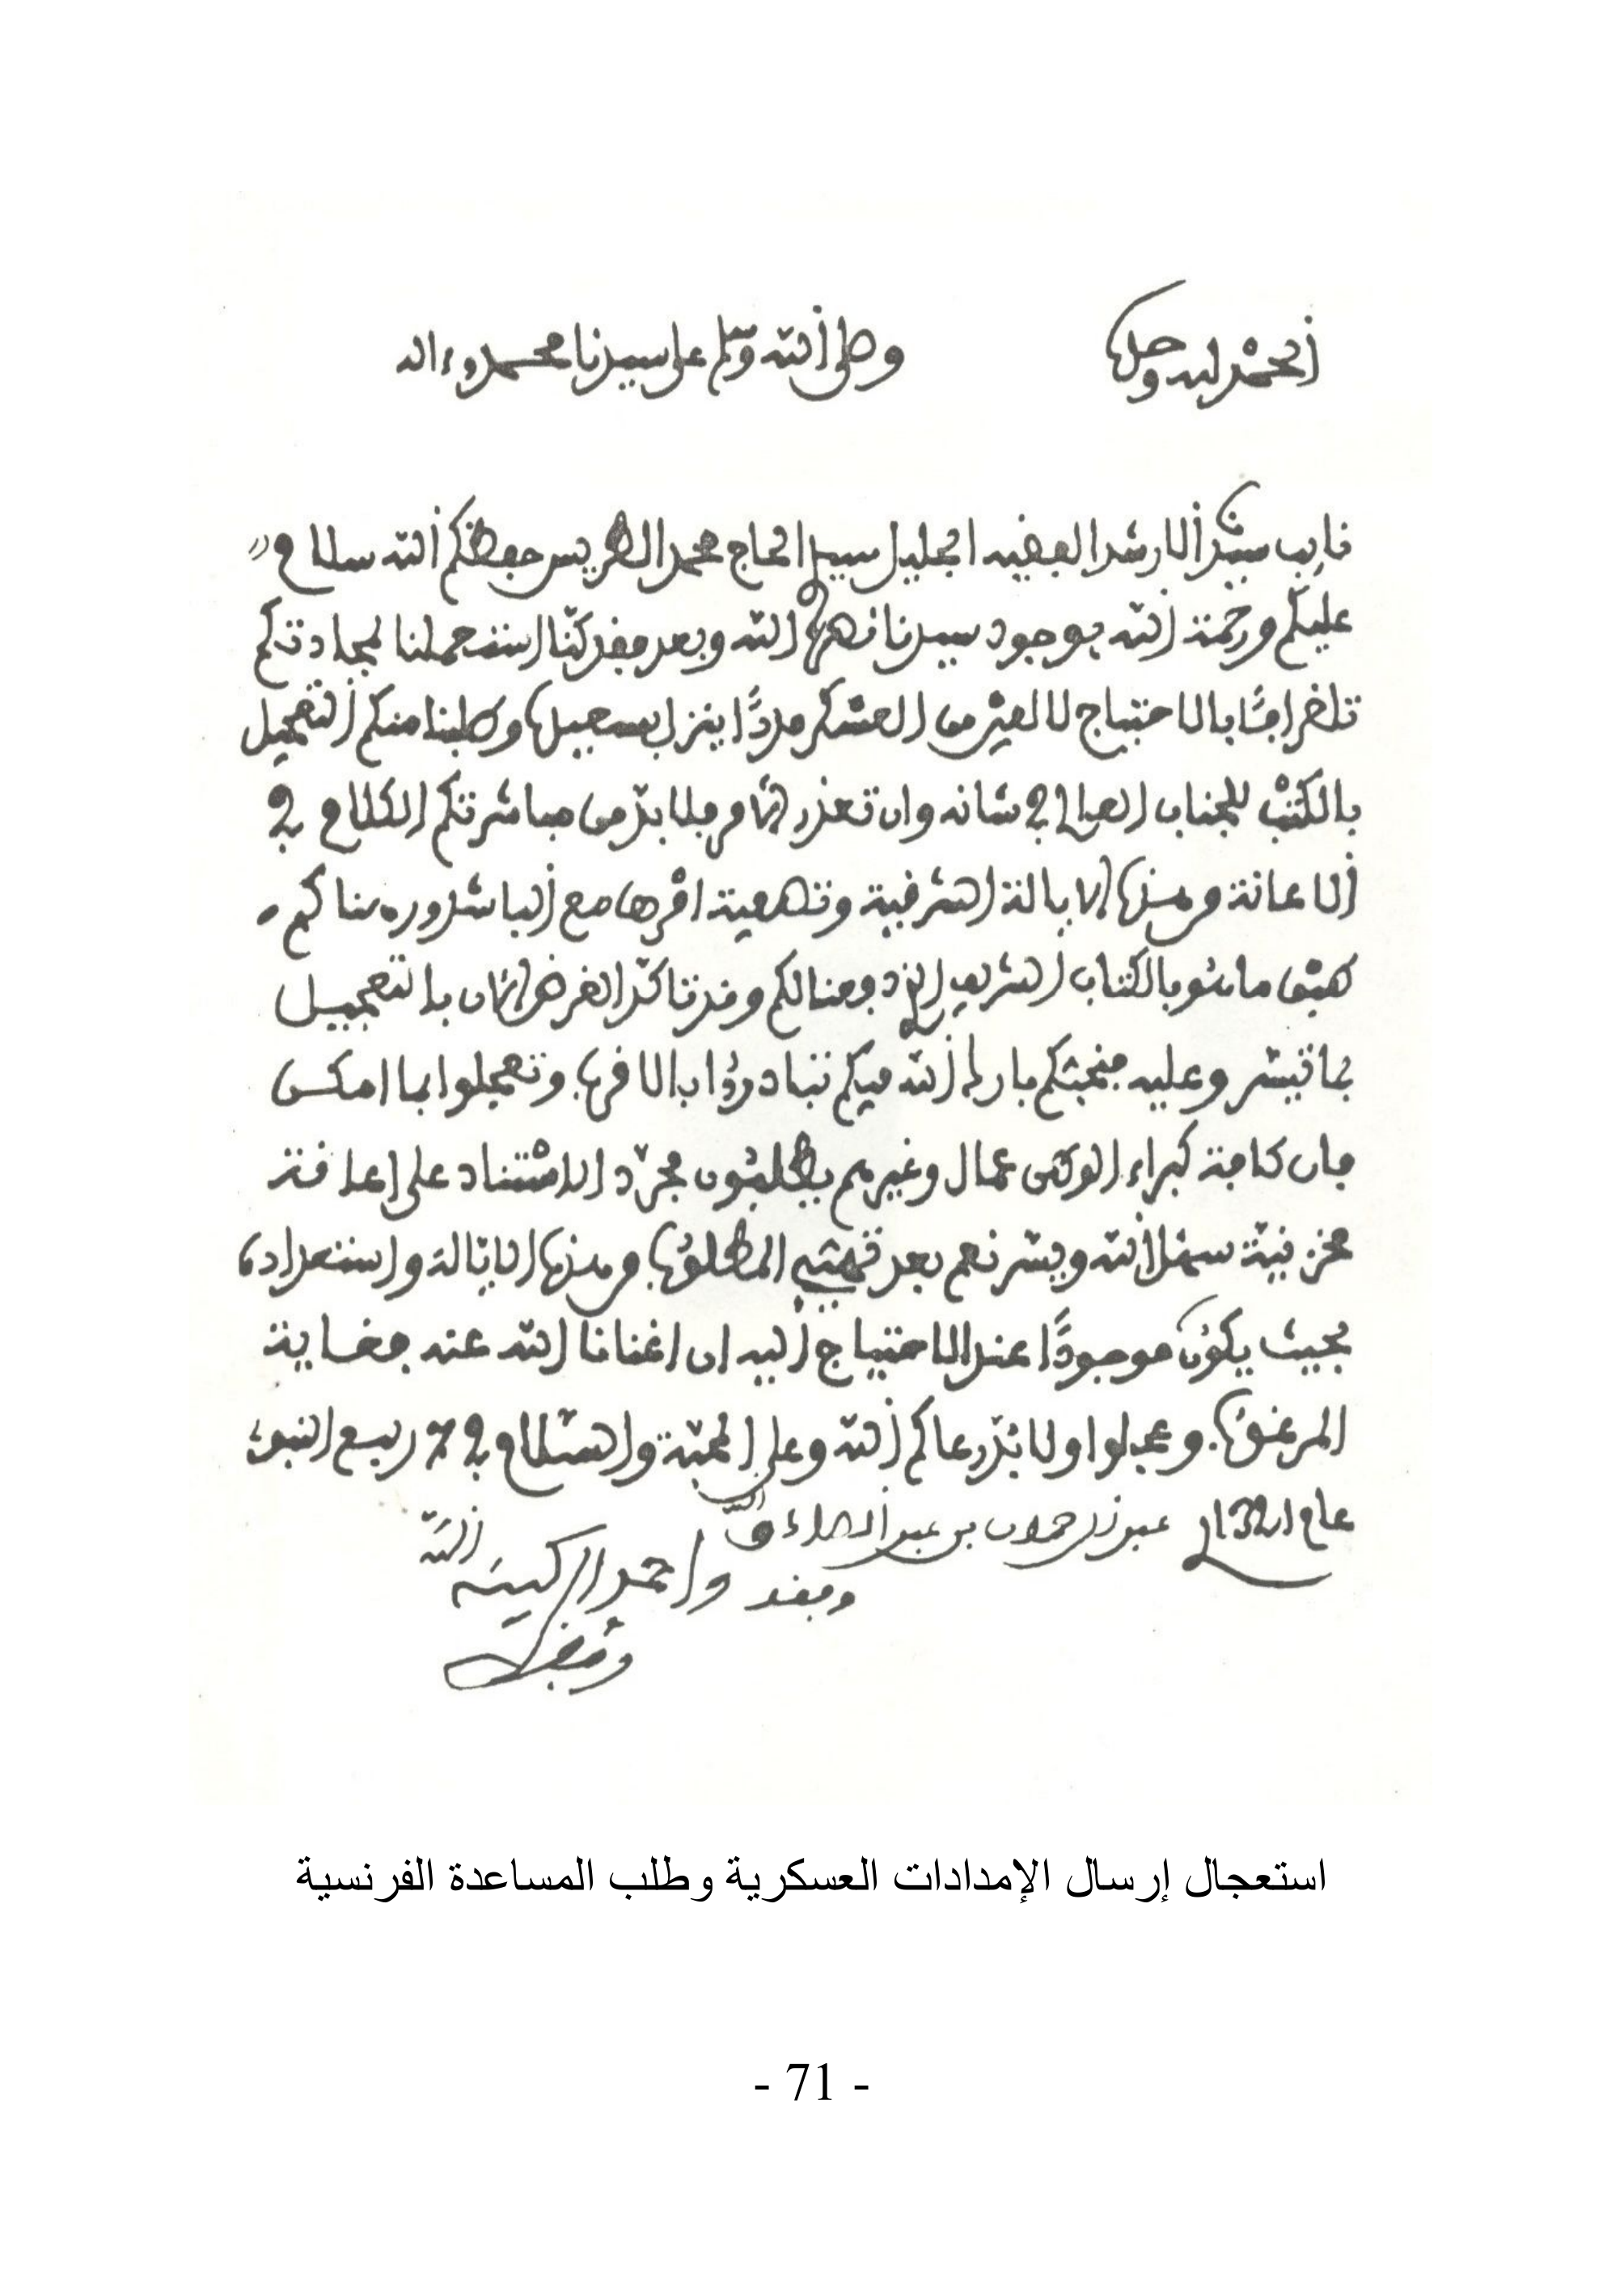 الحمد لله وحده
وصلى الله وسلم على سيدنا محمد وءاله
نايب سيدنا الارشد الفقيه الجليل سيدي الحاج محمد الطريس حفظكم الله سلام
عليكم ورحمة الله بوجود سيدنا نصره الله وبعد فقد كنا استعجلنا لمجادتكم
تلغرافيا بالاحتياج لالفين من العسكر مددا ينزل بسعيدة وطلبنا منكم التعجيل
بالكتب للجناب العالي في شانه وان تعذر الامر فلا بد من مباشرتكم الكلام في
الاعانة من هذه الايالة الشرقية وتصفية امرها مع الباشدور هناكم
بالكتاب الشريف لكم وقد تاكد الغرض الان بالتعجيل
بما تيسر وعليه فنحبكم بارك الله فيكم تبادروا بالامر وتعجلوا بما امكن
فان كافة كبراء الوطن عمال وغيرهم يطلبون مجرد الاستناد على اعانة
مخزنية سهل الله ويسر نعم بعد المطلوب من هذه الايالة واستعداده
بحيث يكون موجودا عند الاحتياج اليه ان اغنانا الله عنه فغاية
المرغوب وعجلوا ولا بد رعاكم الله وعلى المحبة والسلام في 7 ربيع النبوي
عام 1321 عبد الرحمان بن عبد الصادق الله
وفقه واحمد الركينة الله
وفقه
استعجال إرسال الإمدادات العسكرية وطلب المساعدة الفرنسية
- 71 -